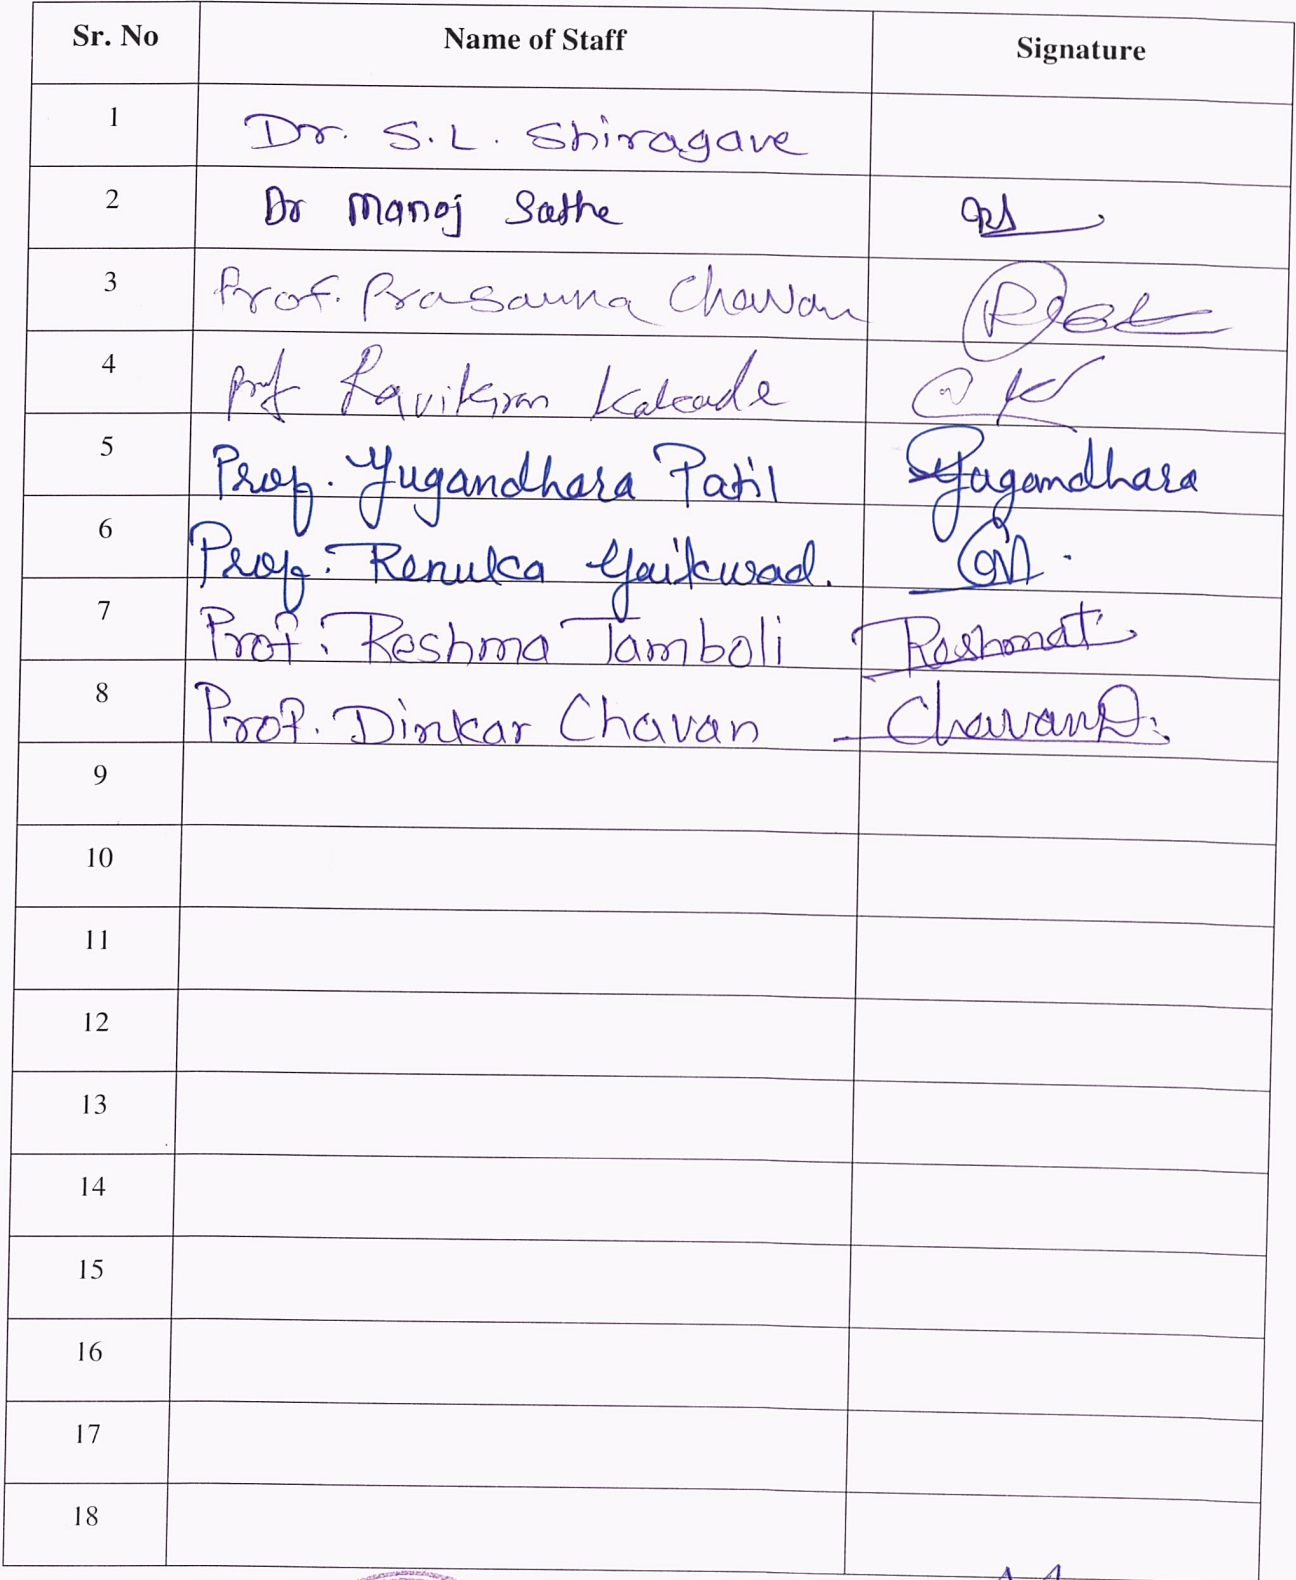 Sr. No Name of Staff Signature
1 Dr. S.L. Shiragave
2 Dr Manoj Sathe
3 Prof. Prasanna Chavan
4 Prof Ravikiran Kakade
5 Prof. Yugandhara Patil Yugandhara
6 Prof. Renuka Gaikwad.
7 Prof. Reshma Tamboli Reshmat
8 Prof. Dinkar Chavan ChavanD.
9
10
11
12
13
14
15
16
17
18